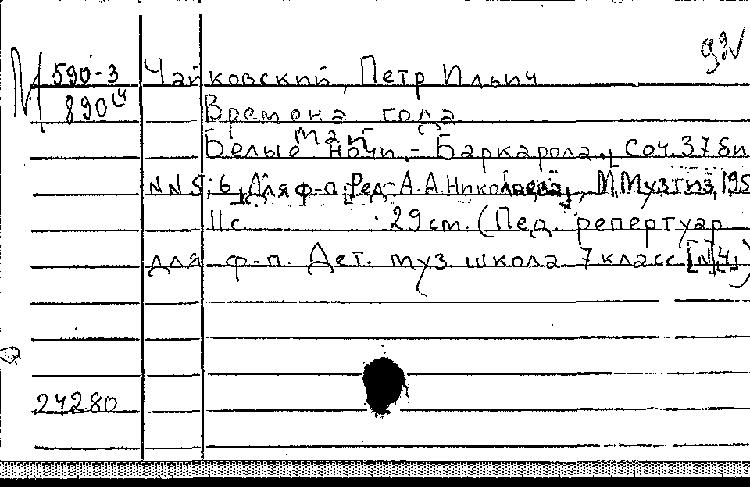 М 590-3 Чайковский, Петр Ильич
890ч Времена года
Май
Белые ночи. - Баркарола. Соч. 37 бис
NN 5; 6, Для ф-п. Ред. А.А. Николаева, М, Музгиз, 195
11 с. 29 см. (Пед. репертуар
для ф-п. Дет. муз. школа 7 класс [N] 4)
24280